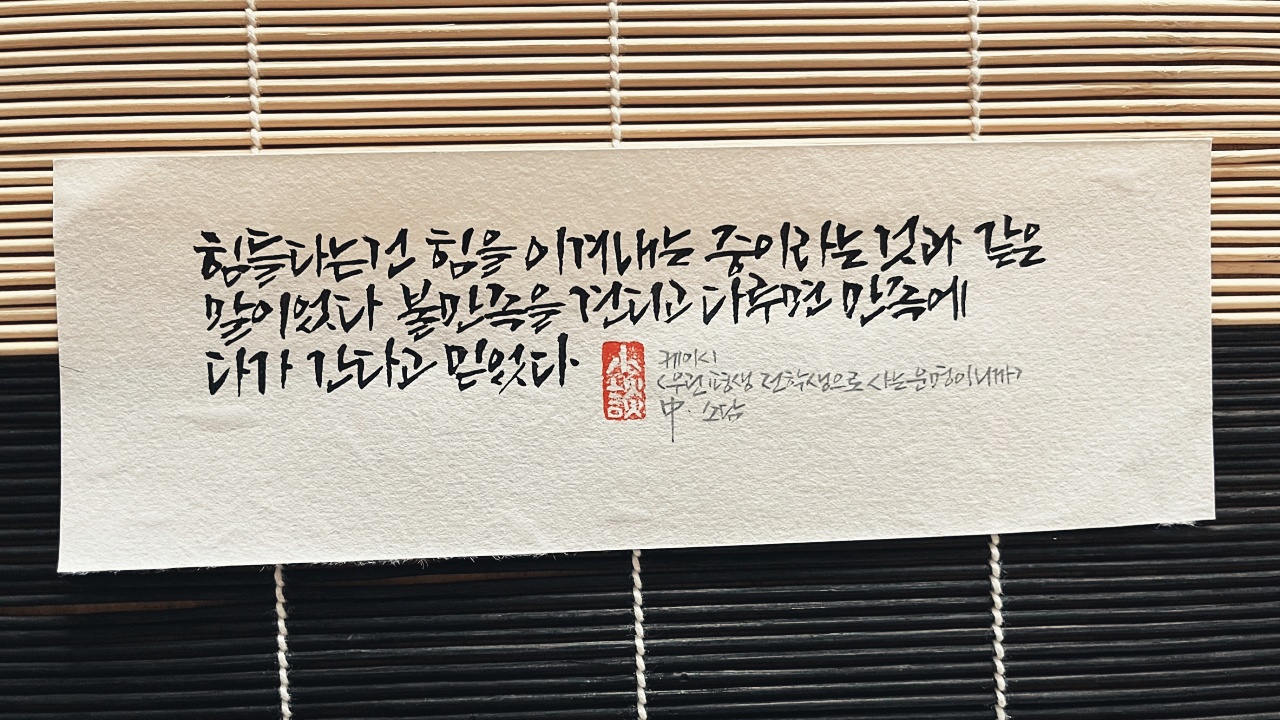 힘들다는건 힘을 이겨내는 중이라는 것과 같은
말이었다 불만족을 견디고 다루면 만족에
다가 간다고 믿었다.
케이시
<우린 평생 전학생으로 사는 운명이니까>
中. 소담